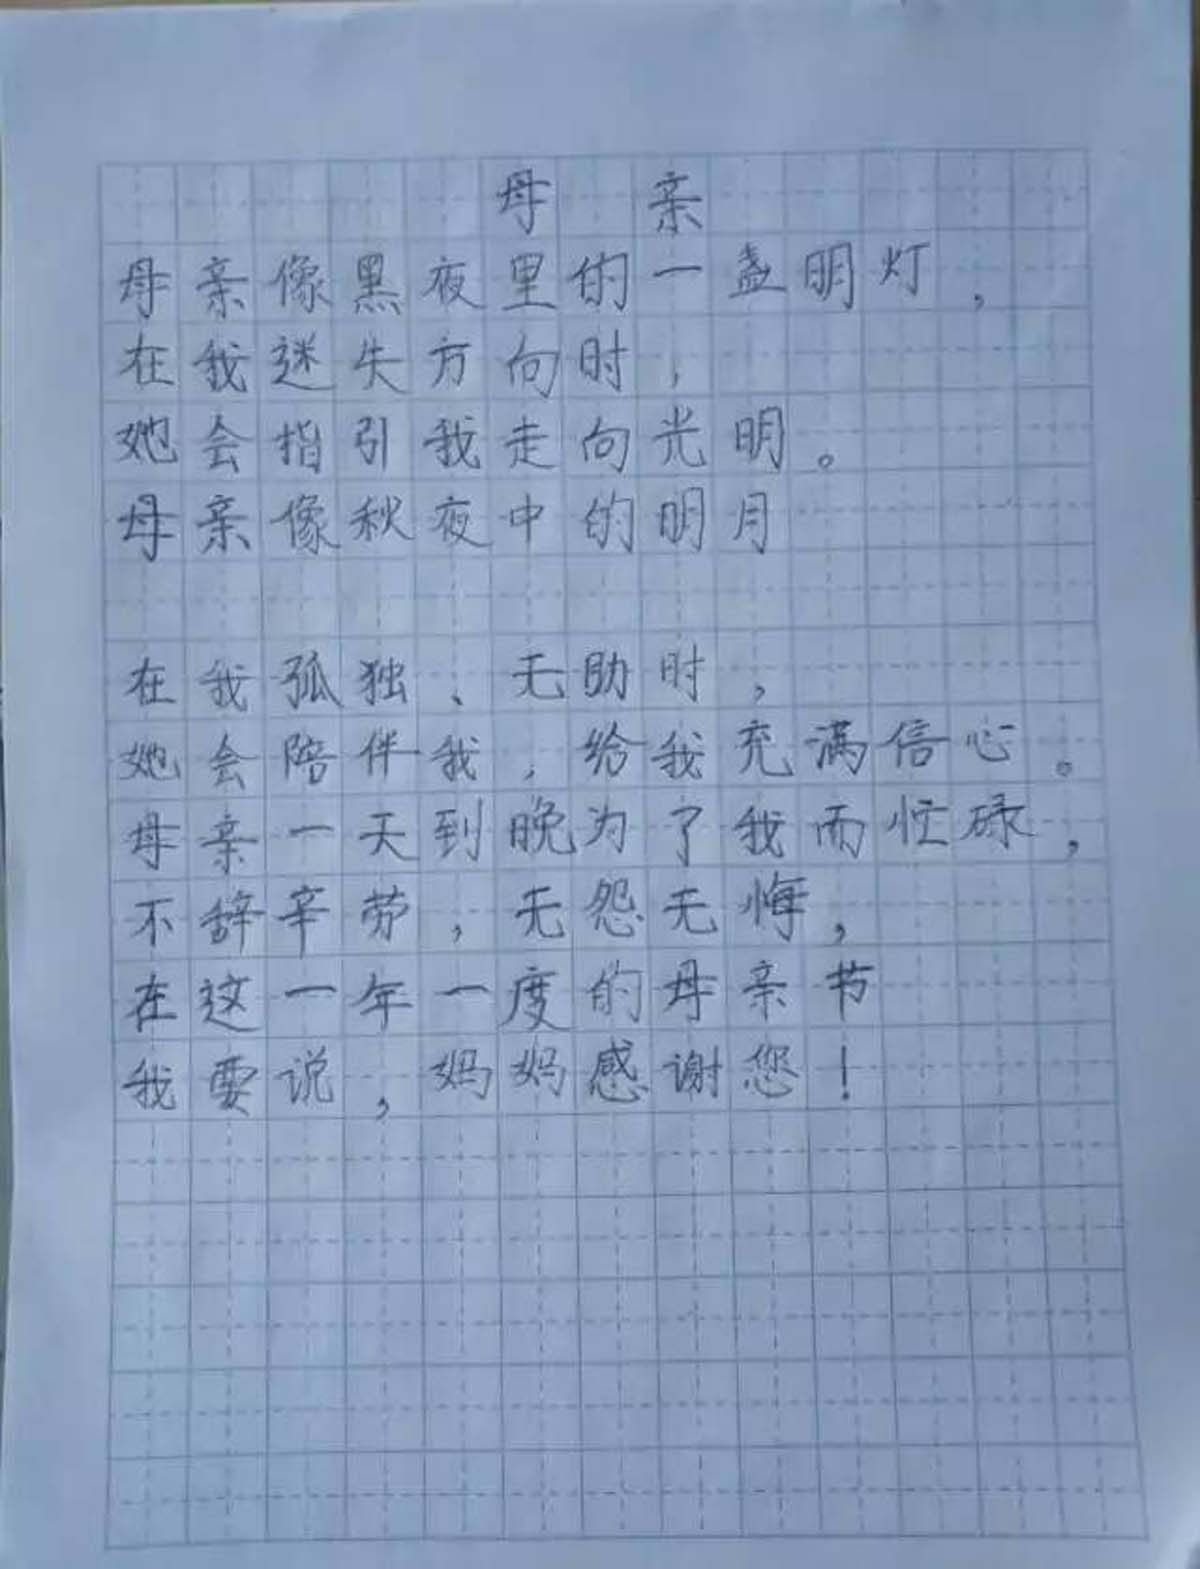 母亲
母亲像黑夜里的一盏明灯，
在我迷失方向时，
她会指引我走向光明。
母亲像秋夜中的明月
在我孤独、无助时，
她会陪伴我，给我充满信心。
母亲一天到晚为了我而忙碌，
不辞辛劳，无怨无悔，
在这一年一度的母亲节
我要说，妈妈感谢您！